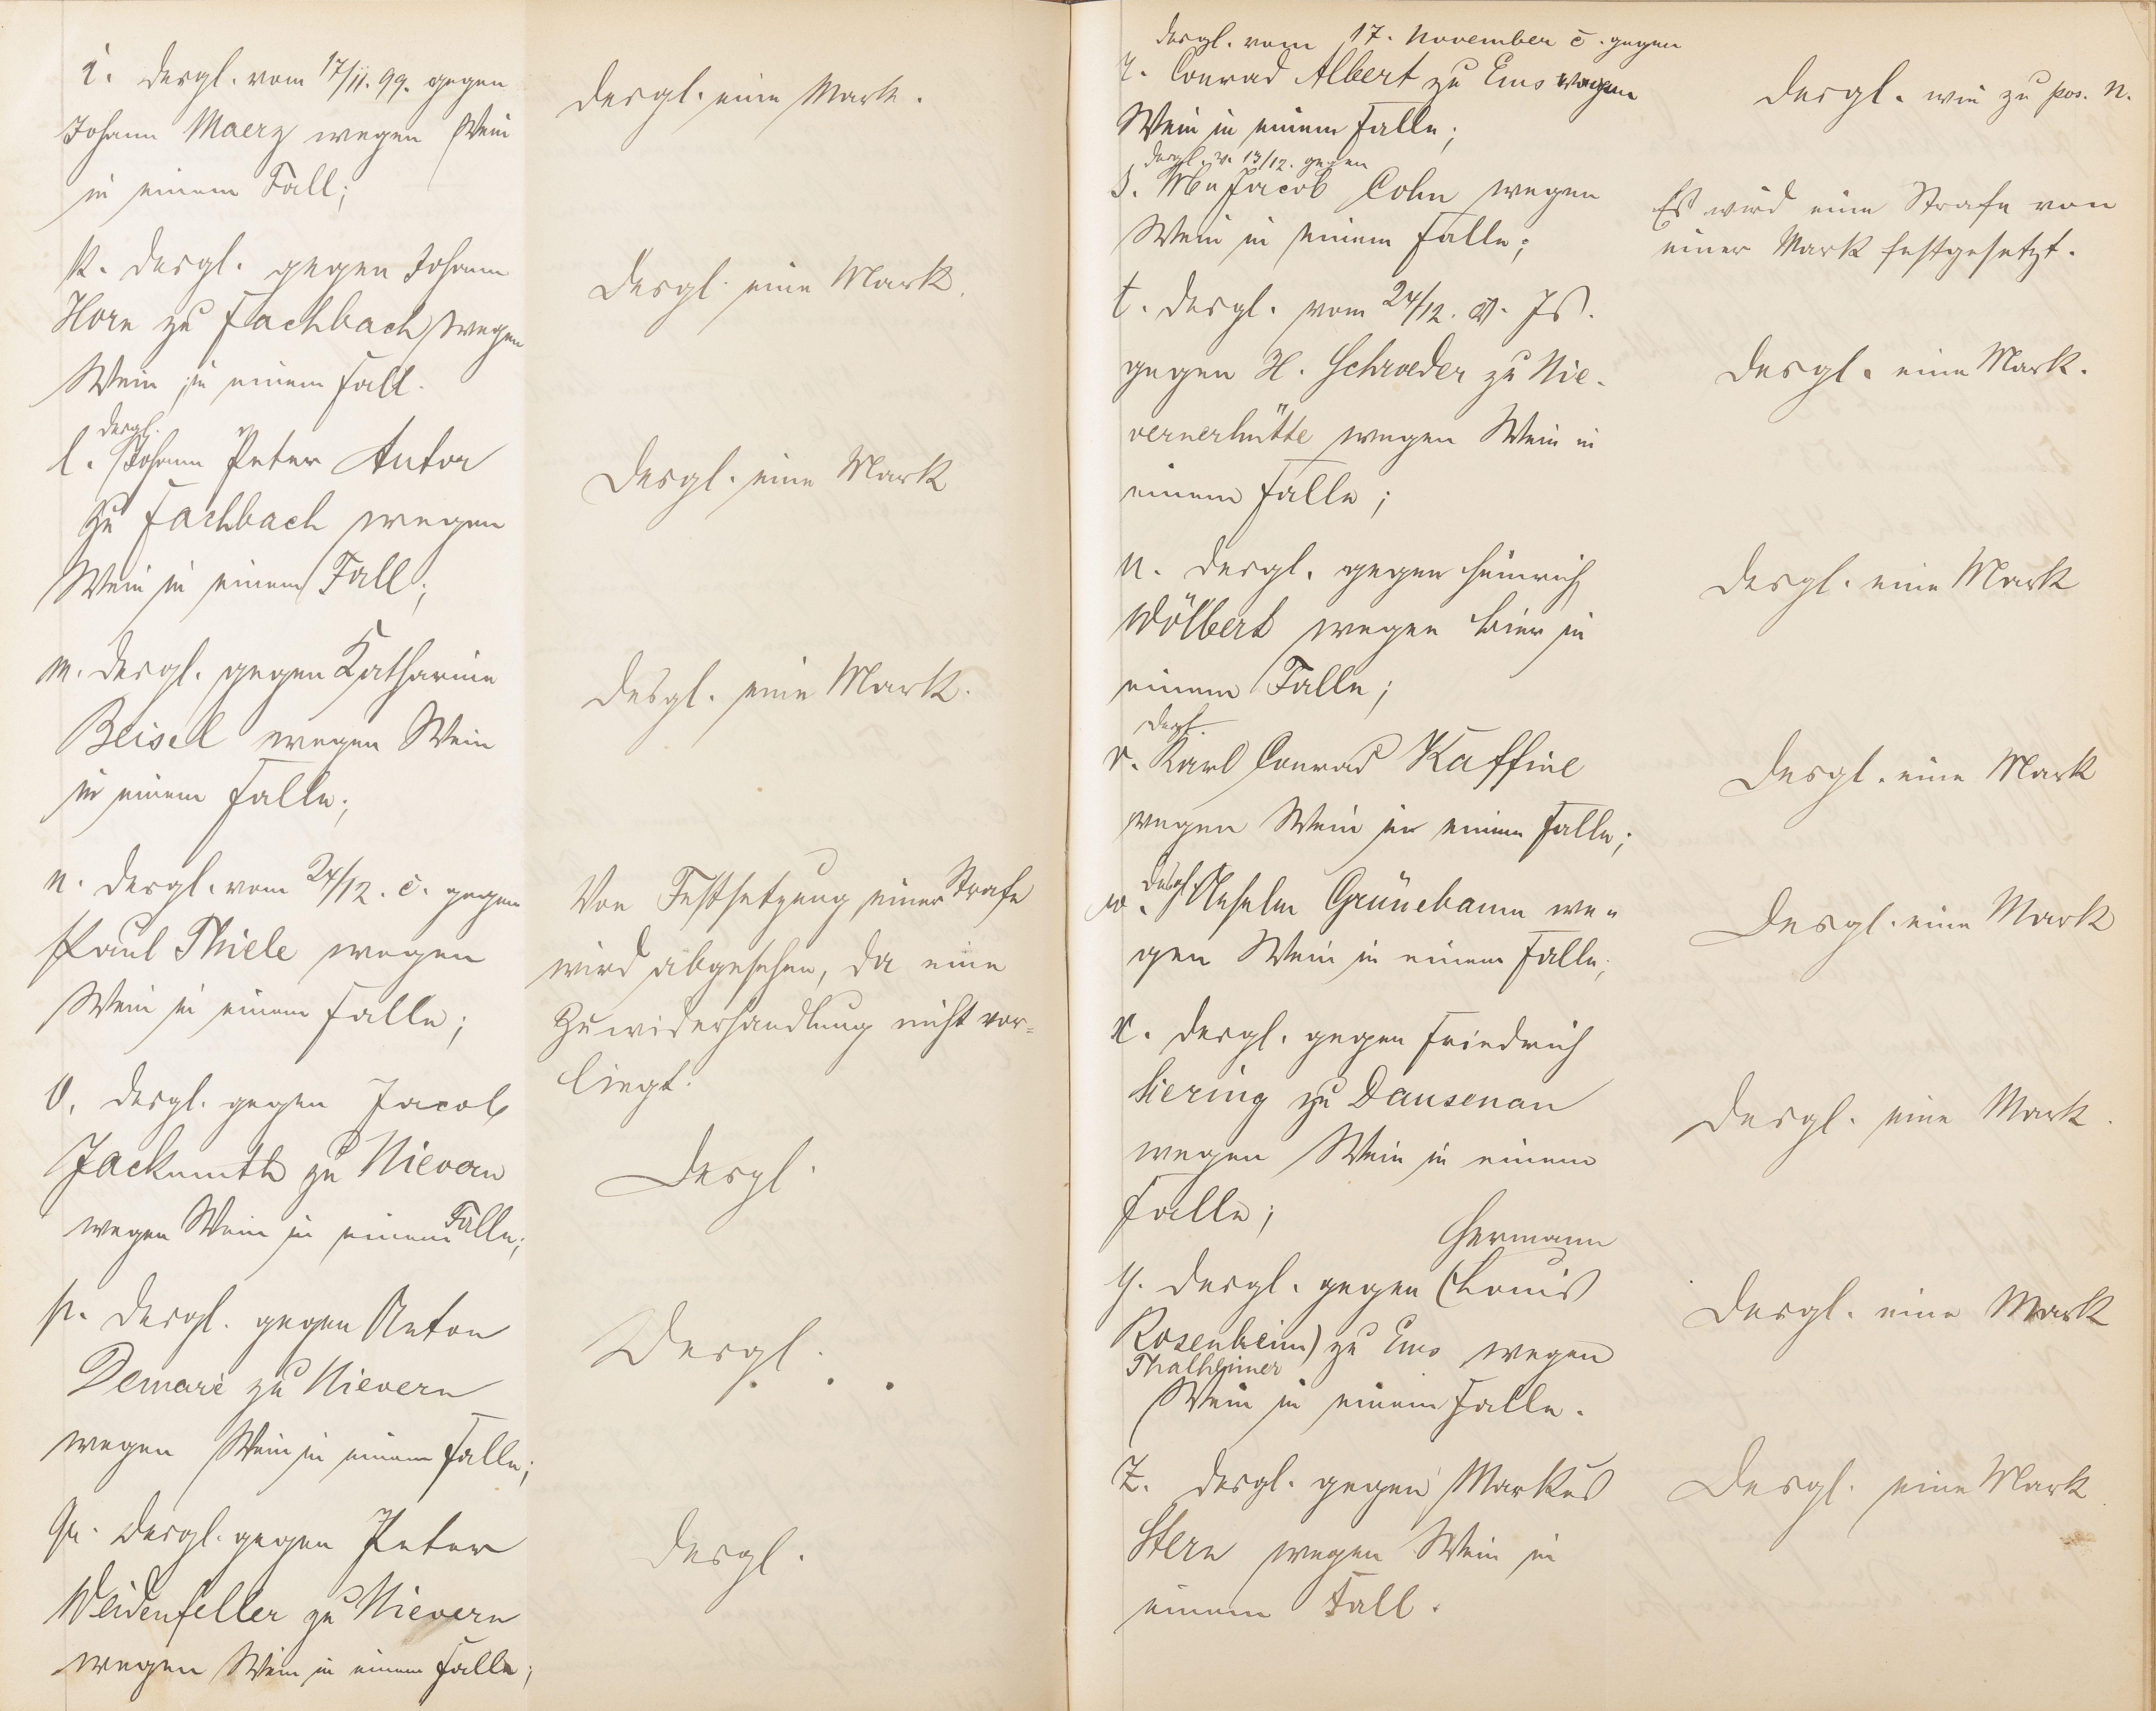 i. desgl. vom 17/11. 99. gegen
Johann Maerz wegen Wein
in einem Fall;
desgl. eine Mark.
k. desgl. gegen Johann
Horn zu Fachbach wegen
Wein in einem Fall.
desgl. eine Mark.
desgl.
l. Johann Peter Antor
zu Fachbach wegen
Wein in einem Fall;
desgl. eine Mark
m. desgl. gegen Katharine
Beisel wegen Wein
in einem Falle;
desgl. eine Mark.
n. desgl. vom 24/12. c. gegen
Paul Thiele wegen
Wein in einem Falle;
Von Festsetzung einer Strafe
wird abgesehen, da eine
Zuwiderhandlung nicht vor-
liegt.
o. desgl. gegen Jacob
Jackmuth zu Nievern
wegen Wein in einem Falle;
desgl.
p. desgl. gegen Anton
Demaré zu Nievern
wegen Wein in einem Falle;
desgl.
q. desgl. gegen Peter
Weidenfeller zu Nievern
wegen Wein in einem Falle;
desgl.
desgl. vom 17. November c. gegen
r. Conrad Albert zu Ems wegen
Wein in einem Falle;
desgl. wie zu pos. n.
desgl. v. 13/12. gegen
s. Jacob Cohn wegen
Wein in einem Falle;
Es wird eine Strafe von
einer Mark festgesetzt.
t. desgl. vom 24/12. v. Js.
gegen H. Schroeder zu Nie-
vernerhütte wegen Wein in
einem Falle;
desgl. eine Mark.
u. desgl. gegen Heinrich
Wölbert wegen Bier in
einem Falle;
desgl. eine Mark
desgl.
v. Karl Conrad Kaffine
wegen Wein in einem Falle;
desgl. eine Mark
desgl.
w. Anselm Grünebaum we-
gen Wein in einem Falle;
desgl. eine Mark
x. desgl. gegen Friedrich
Hering zu Dausenau
wegen Wein in einem
Falle;
desgl. eine Mark.
Hermann
y. desgl. gegen (Louis
Rosenheim) zu Ems wegen
Thalheimer
Wein in einem Falle.
desgl. eine Mark
z. desgl. gegen Markus
Stern wegen Wein in
einem Fall.
desgl. eine Mark